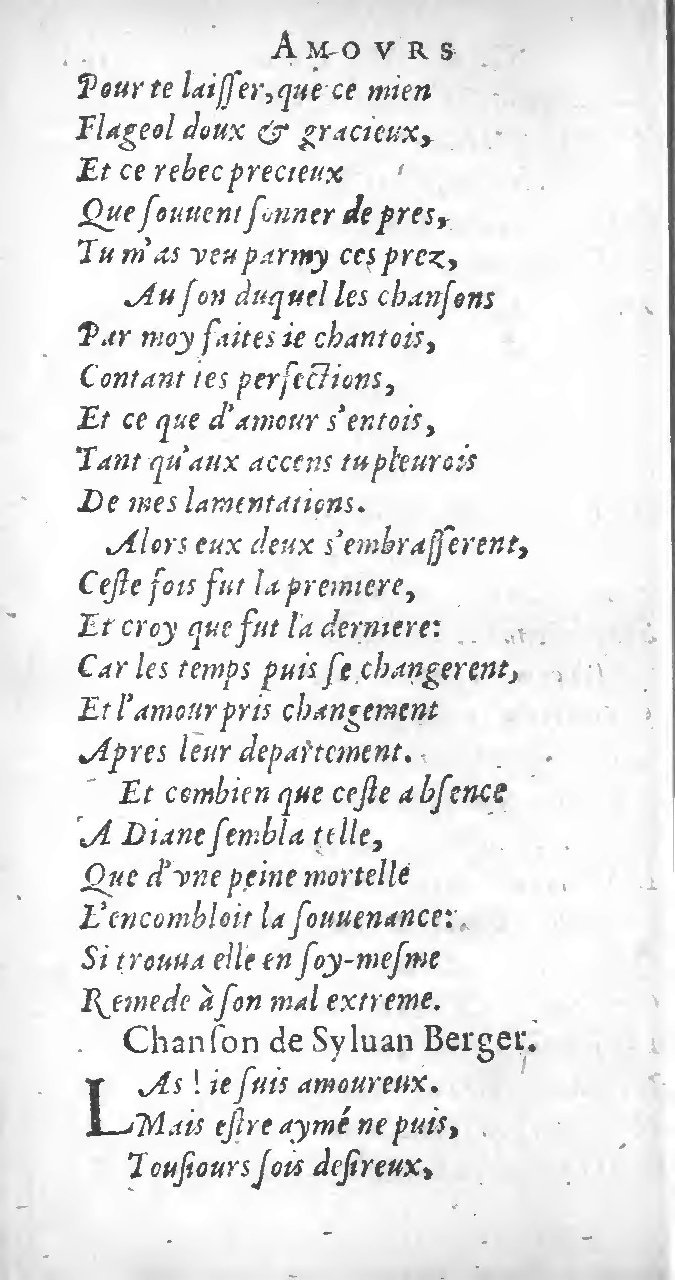 AMOVRS
Pour te laiſſer, que ce mien
Flageol doux & gracieux,
Et ce rebec precieux
Que ſouuent ſonner de pres,
Tu m'as veu parmy ces prez,
Au ſon duquel les chanſons
Par moy faites ie chantois,
Contant tes perfections,
Et ce que d'amour s'entois,
Tant qu'aux accens tu pleurois
De mes lamentations.
Alors eux deux s'embraſſerent,
Ceſte fois fut la premiere,
Et croy que fut la derniere:
Car les temps puis ſe changerent,
Et l'amour pris changement
Apres leur departement.
Et combien que ceſte abſence
A Diane ſembla telle,
Que d'vne peine mortelle
L'encombloit la ſouuenance:
Si trouua elle en ſoy-meſme
Remede à ſon mal extreme.
Chanſon de Syluan Berger.
LAs ! ie ſuis amoureux.
Mais eſtre aymé ne puis,
Touſiours ſois deſireux,